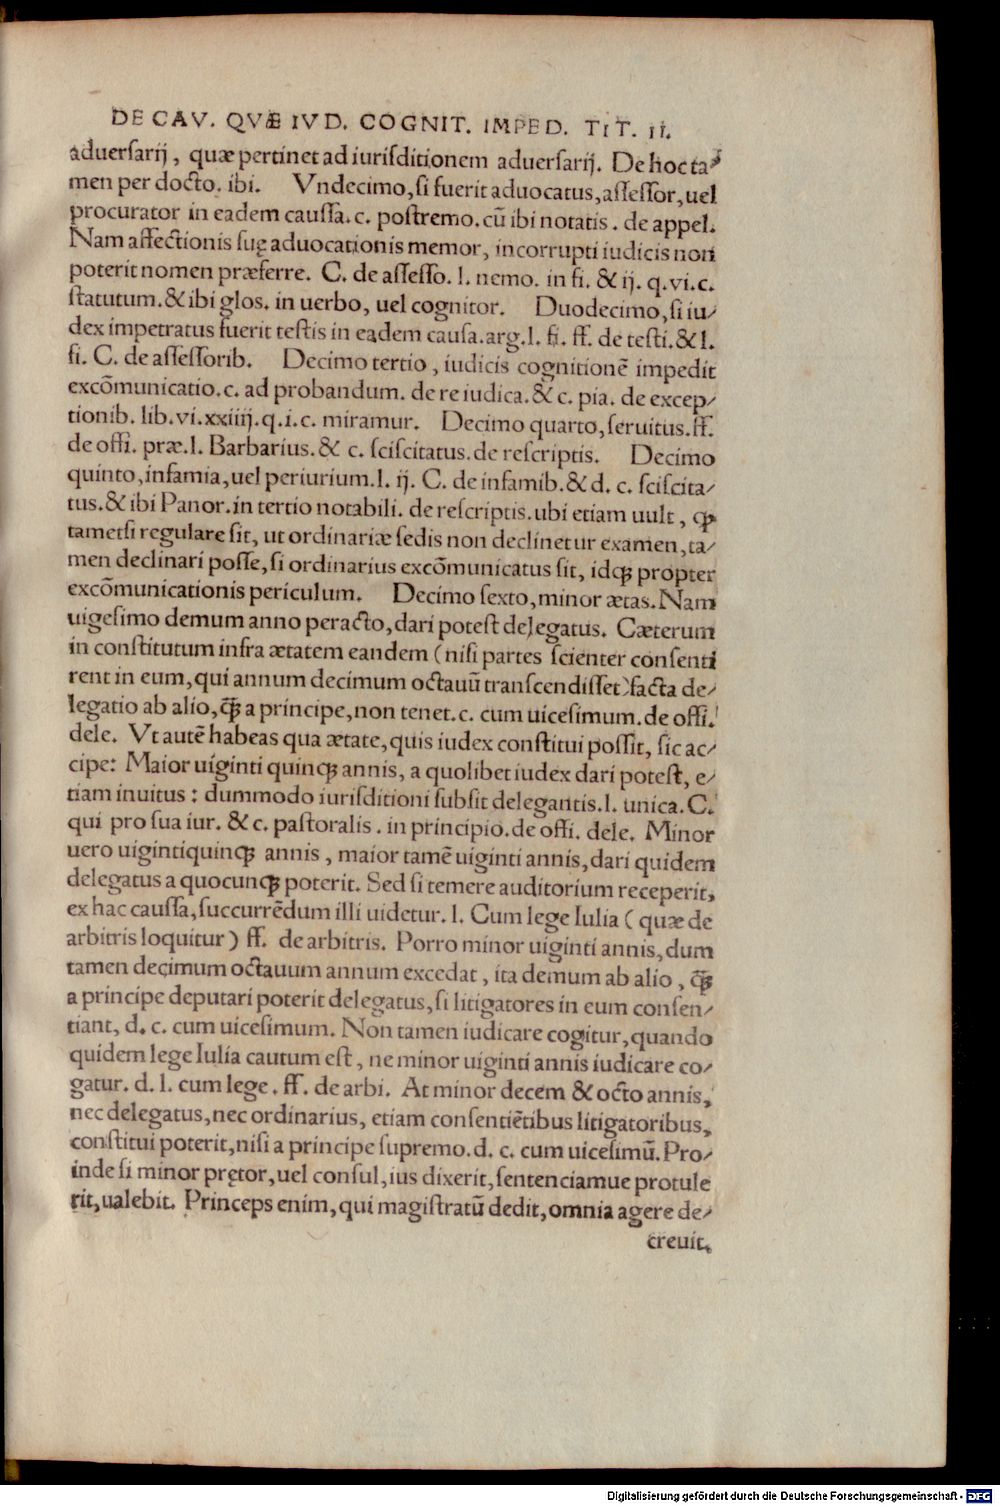 DE CAV. QVÆ IVD. COGNIT. IMPED. TIT. II.
aduersarij, quæ pertinet ad iurisditionem aduersarij. De hoc ta⸗
men per docto. ibi. Vndecimo, si fuerit aduocatus, assessor, uel
procurator in eadem caussa. c. postremo. cũ ibi notatis. de appel.
Nam affectionis suę aduocationis memor, incorrupti iudicis non
poterit nomen præferre. C. de assesso. l. nemo. in fi. & ij. q. vi. c.
statutum. & ibi glos. in uerbo, uel cognitor. Duodecimo, si iu⸗
dex impetratus fuerit testis in eadem causa. arg. l. fi. ff. de testi. & l.
fi. C. de assessorib. Decimo tertio, iudicis cognitionẽ impedit
excõmunicatio. c. ad probandum. de re iudica. & c. pia. de excep⸗
tionib. lib. vi. xxiiij. q. i. c. miramur. Decimo quarto, seruitus. ff.
de offi. præ. l. Barbarius. & c. sciscitatus. de rescriptis. Decimo
quinto, infamia, uel periurium. l. ij. C. de infamib. & d. c. sciscita⸗
tus. & ibi Panor. in tertio notabili. de rescriptis. ubi etiam uult, ꝙ
tametsi regulare sit, ut ordinariæ sedis non declinetur examen, ta⸗
men declinari posse, si ordinarius excõmunicatus sit, idqꝫ propter
excõmunicationis periculum. Decimo sexto, minor ætas. Nam
uigesimo demum anno peracto, dari potest delegatus. Cæterum
in constitutum infra ætatem eandem (nisi partes scienter consenti
rent in eum, qui annum decimum octauũ transcendisset) facta de⸗
legatio ab alio, q̃ꝫ a principe, non tenet. c. cum uicesimum. de offi.
dele. Vt autẽ habeas qua ætate, quis iudex constitui possit, sic ac⸗
cipe: Maior uiginti quinqꝫ annis, a quolibet iudex dari potest, e⸗
tiam inuitus: dummodo iurisditioni subsit delegantis. l. unica. C.
qui pro sua iur. & c. pastoralis. in principio. de offi. dele. Minor
uero uigintiquinqꝫ annis, maior tamẽ uiginti annis, dari quidem
delegatus a quocunqꝫ poterit. Sed si temere auditorium receperit,
ex hac caussa, succurrẽdum illi uidetur. l. Cum lege Iulia (quæ de
arbitris loquitur) ff. de arbitris. Porro minor uiginti annis, dum
tamen decimum octauum annum excedat, ita demum ab alio, q̃ꝫ
a principe deputari poterit delegatus, si litigatores in eum consen⸗
tiant, d. c. cum uicesimum. Non tamen iudicare cogitur, quando
quidem lege Iulia cautum est, ne minor uiginti annis iudicare co⸗
gatur. d. l. cum lege. ff. de arbi. At minor decem & octo annis,
nec delegatus, nec ordinarius, etiam consentiẽtibus litigatoribus,
constitui poterit, nisi a principe supremo. d. c. cum uicesimũ. Pro⸗
inde si minor prętor, uel consul, ius dixerit, sentenciamue protule
rit, ualebit. Princeps enim, qui magistratũ dedit, omnia agere de⸗
creuit.
Digitalisierung gefördert durch die Deutsche Forschungsgemeinschaft - DFG